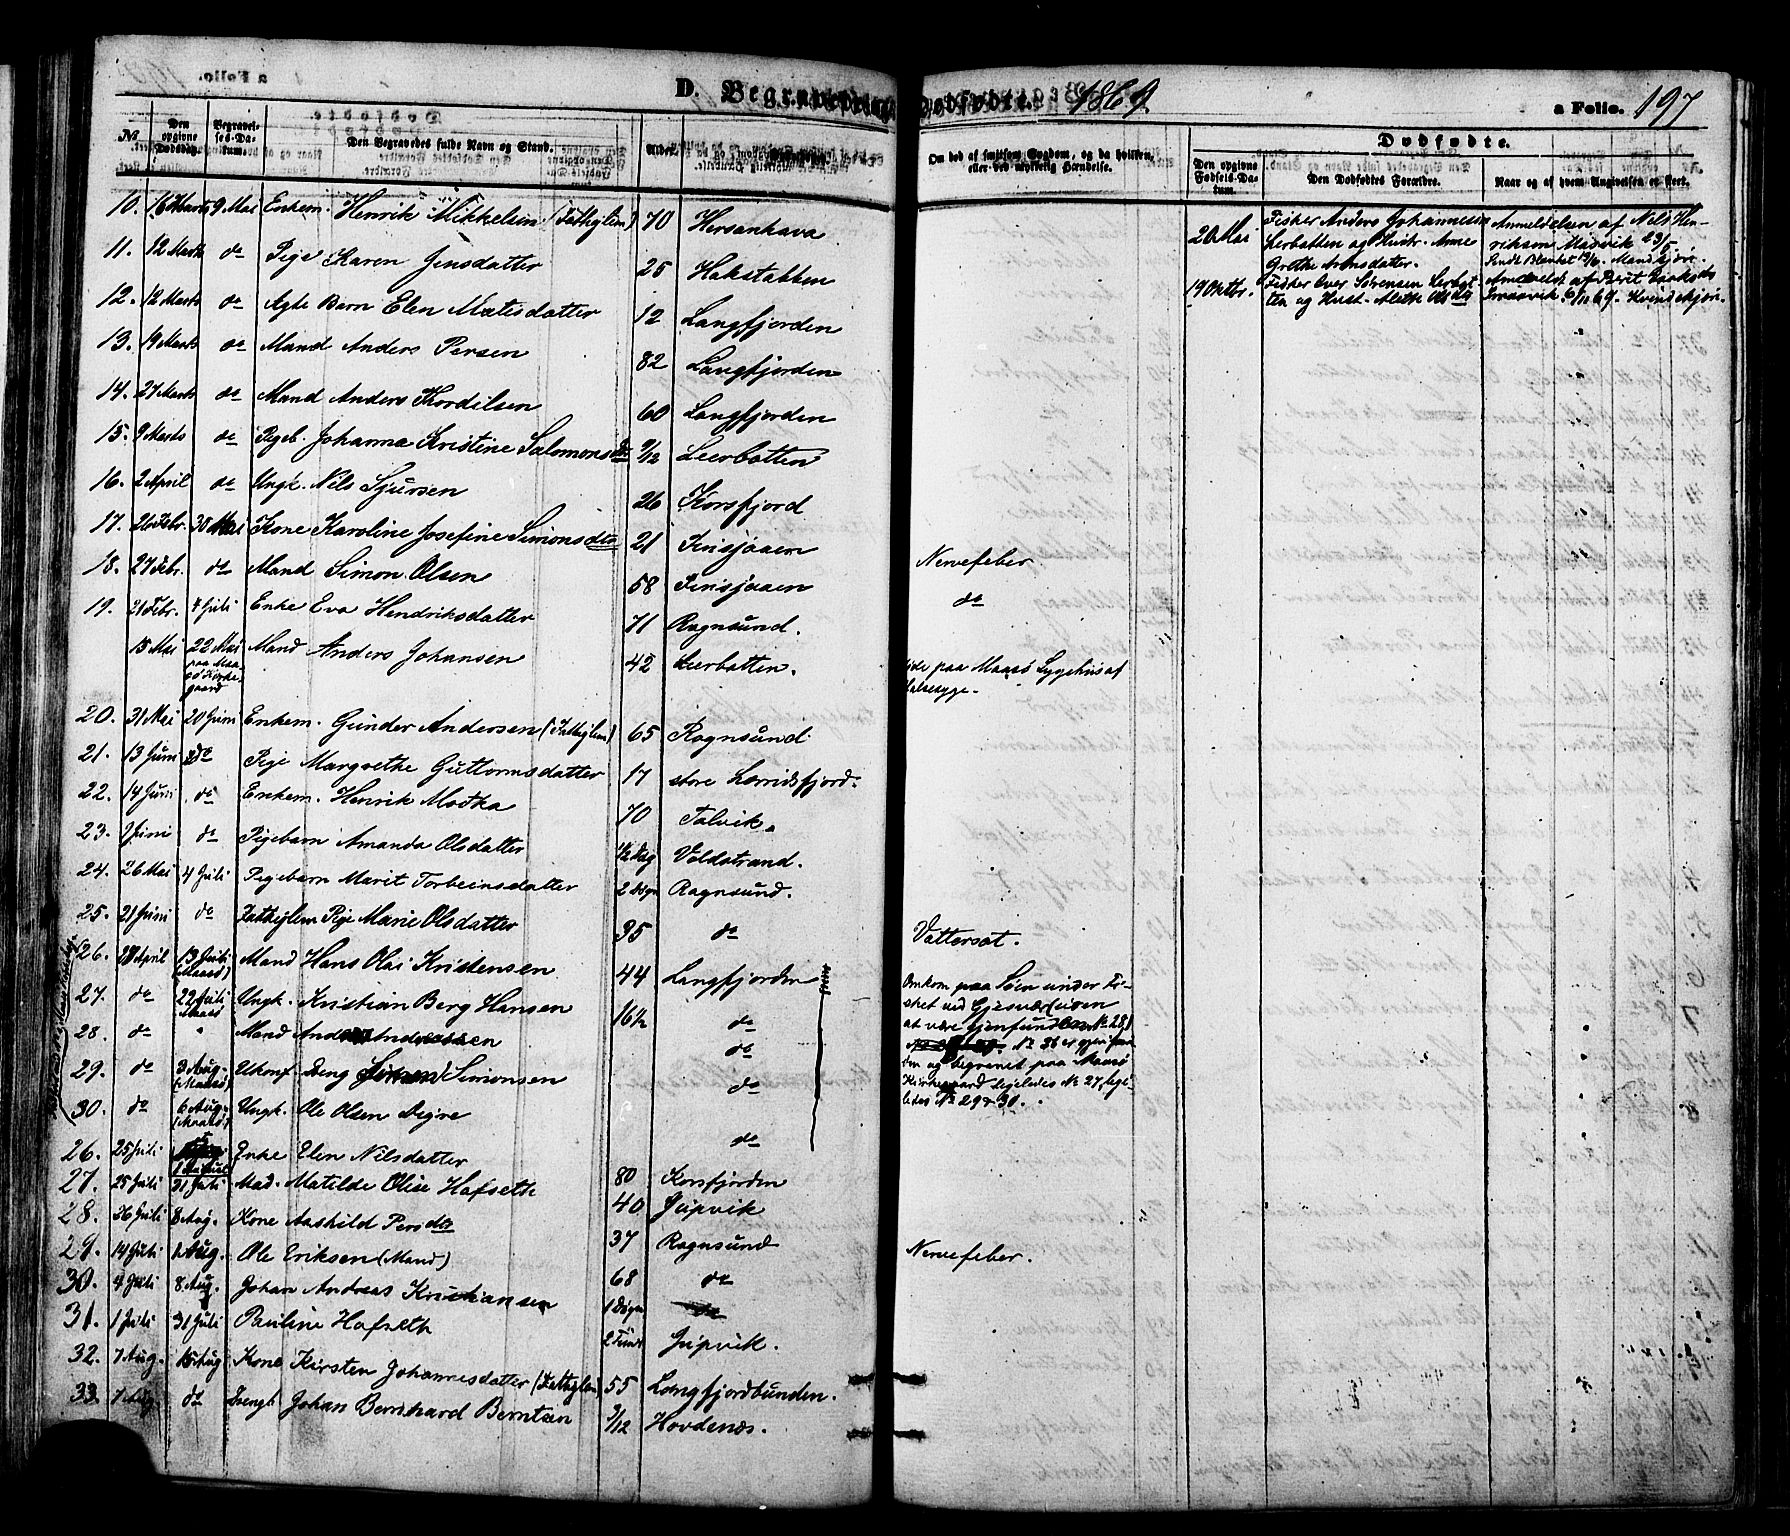 D. Begravede og Dødfødte. 1869. a Folio. 197
No. Den opgivne Dødsdag. Begravelses-Datum. Den Begravedes fulde Navn og Stand. Alder.
Om død af smitsom Sygdom, og da hvilken, eller ved ulykkelig Hændelse.
Dødfødte.
Den opgivne Fødsels-Datum. Den Dødfødtes Forældre. Naar og af hvem Angivelsen er skeet.
10. 16 Marts 9 Mai Enkem. Henrik Mikkelsen (Fattiglem) 70 Hersenhava
11. 12 Marts do Pige Karen Jensdatter 25 Hakstabben
12. 12 Marts do Ægte Barn Elen Matisdatter 12 Langfjorden
13. 19 Marts do Mand Anders Persen 82 Langfjorden
14. 27 Marts do Mand Anders Kordilsen 60 Langfjorden
15. 9 Marts do Pigeb. Johanna Kristine Salomonsdtr 9/12 Leerbotten
16. 2 April do Ungk. Nils Sjursen 26 Korsfjord
17. 26 Febr. 30 Mai Kone Karoline Josefine Simonsdtr 21 Finsjøaaen Nervefeber
18. 27 Febr. do Mand Simon Olsen 58 Finsjøaaen do
19. 21 Febr. 4 Juli Enke Eva Hendriksdatter 71 Rognsund.
15 Mai 22 Mai paa Maasø Kirkegaard Mand Anders Johansen 42 Leerbotten. døde paa Maasø Sygehus af
Halssyge.
20. 31 Mai 20 Juni Enkem. Gunder Andersen (Fattiglem) 65 Rognsund
21. 13 Juni do Pige Margrethe Guttormsdatter 17 store Lerridsfjord.
22. 14 Juni do Enkem. Henrik Madka 70 Talvik.
23. 9 Juni do Pigebarn Amanda Olsdatter 1/2 Dag Voldstrand.
24. 26 Mai 4 Juli Pigebarn Marit Torbeinsdatter 2 Døgn Rognsund.
25. 21 Juni do Fattiglem Pige Marie Olsdatter 35 do Vattersot.
26. 28 April 13 Juli (Maasø) Mand Hans Olai Kristensen 44 Langfjorden
27. do 22 Juli Maasø Ungk. Kristian Berg Hansen 16 1/2 do
28. do " Mand Anders Andersen do
29. do 3 Aug. (Maasø) Ukonf. Dreng Simonsen do
30. do 6 Aug. (Maasø) Ungk. Ole Olsen Degre do
Omkom paa Søen under Fi-
sket ved Gjesvær (uden
at være gjenfunden No 28)
No 26 er gjenfun-
den og begravet paa Maasø
Kirkegaard ligeledes No 27, lige-
ledes No 29 & 30.
26. 25 Juli 1 August Enke Elen Nilsdatter 80 Korsfjorden
27. 25 Juli 31 Juli Mad. Matilde Olise Hafseth 40 Jupvik
28. 26 Juli 8 Aug. Kone Aashild Persdtr 37 Rognsund Nervefeber.
29. 14 Juli 1 Aug. Ole Eriksen (Mand) 68 do
30. 4 Juli 8 Aug. Johan Andreas Kristiansen 1 Døgn do
31. 1 Juli 31 Juli Pauline Hafseth 2 Timer Jupvik.
32. 7 Aug. 15 Aug Kone Kirsten Johannesdatter (Fattiglem) 55 Langfjordbunden.
33. 1 Aug. do Drengb. Johan Bernhard Berntsen 9/12 Hovdenæs.
20 Mai Fisker Anders Johannesen
Lerbotten og Hustr. Anne
Grethe Aronsdatter.
Anmeldelsen af Nils Hen-
rikson Mødvik 23/5.
Sendt Blanket 19/6. Mandkjøn.
19 Oktbr. Fisker Iver Sørensen Lerbot-
ten og Hust. Mette Olsdtr
Anmeldt af Berit Isaksdtr
Smaavik 6/11 69. Kvindekjøn.